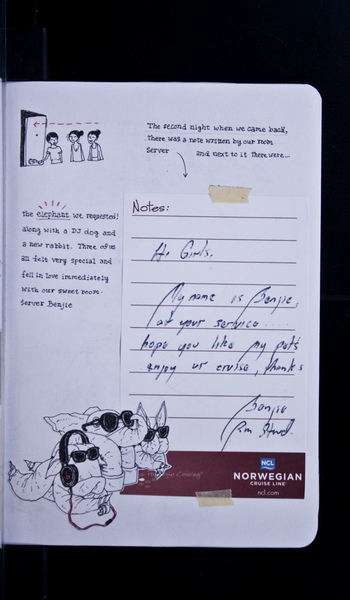 The second night when we came back,
There was a note written by our room
server and next to it There were...
the elephant we requested!
along with a DJ dog and
a new rabbit. Three of us
all felt very special and
fell in love immediately
with our sweet room-
server Benjie
Notes:
Hi Girls,
My name is Benjie,
at your service.....
hope you like my pets
enjoy ur cruise, thanks
Benjie
NCL
NORWEGIAN
CRUISE LINE
ncl.com